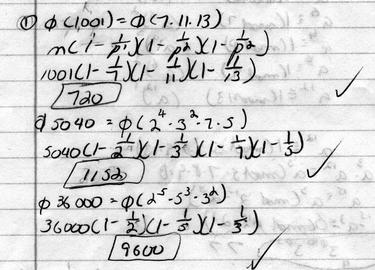 ① φ(1001) = φ(7·11·13)
n(1 - 1/p1)(1 - 1/p2)(1 - 1/p2)
1001(1 - 1/7)(1 - 1/11)(1 - 1/13)
720 ✓
φ 5040 = φ(2^4·3^2·7·5)
5040(1 - 1/2)(1 - 1/3)(1 - 1/7)(1 - 1/5)
1152 ✓
φ 36000 = φ(2^5·5^3·3^2)
36000(1 - 1/2)(1 - 1/5)(1 - 1/3)
9600 ✓